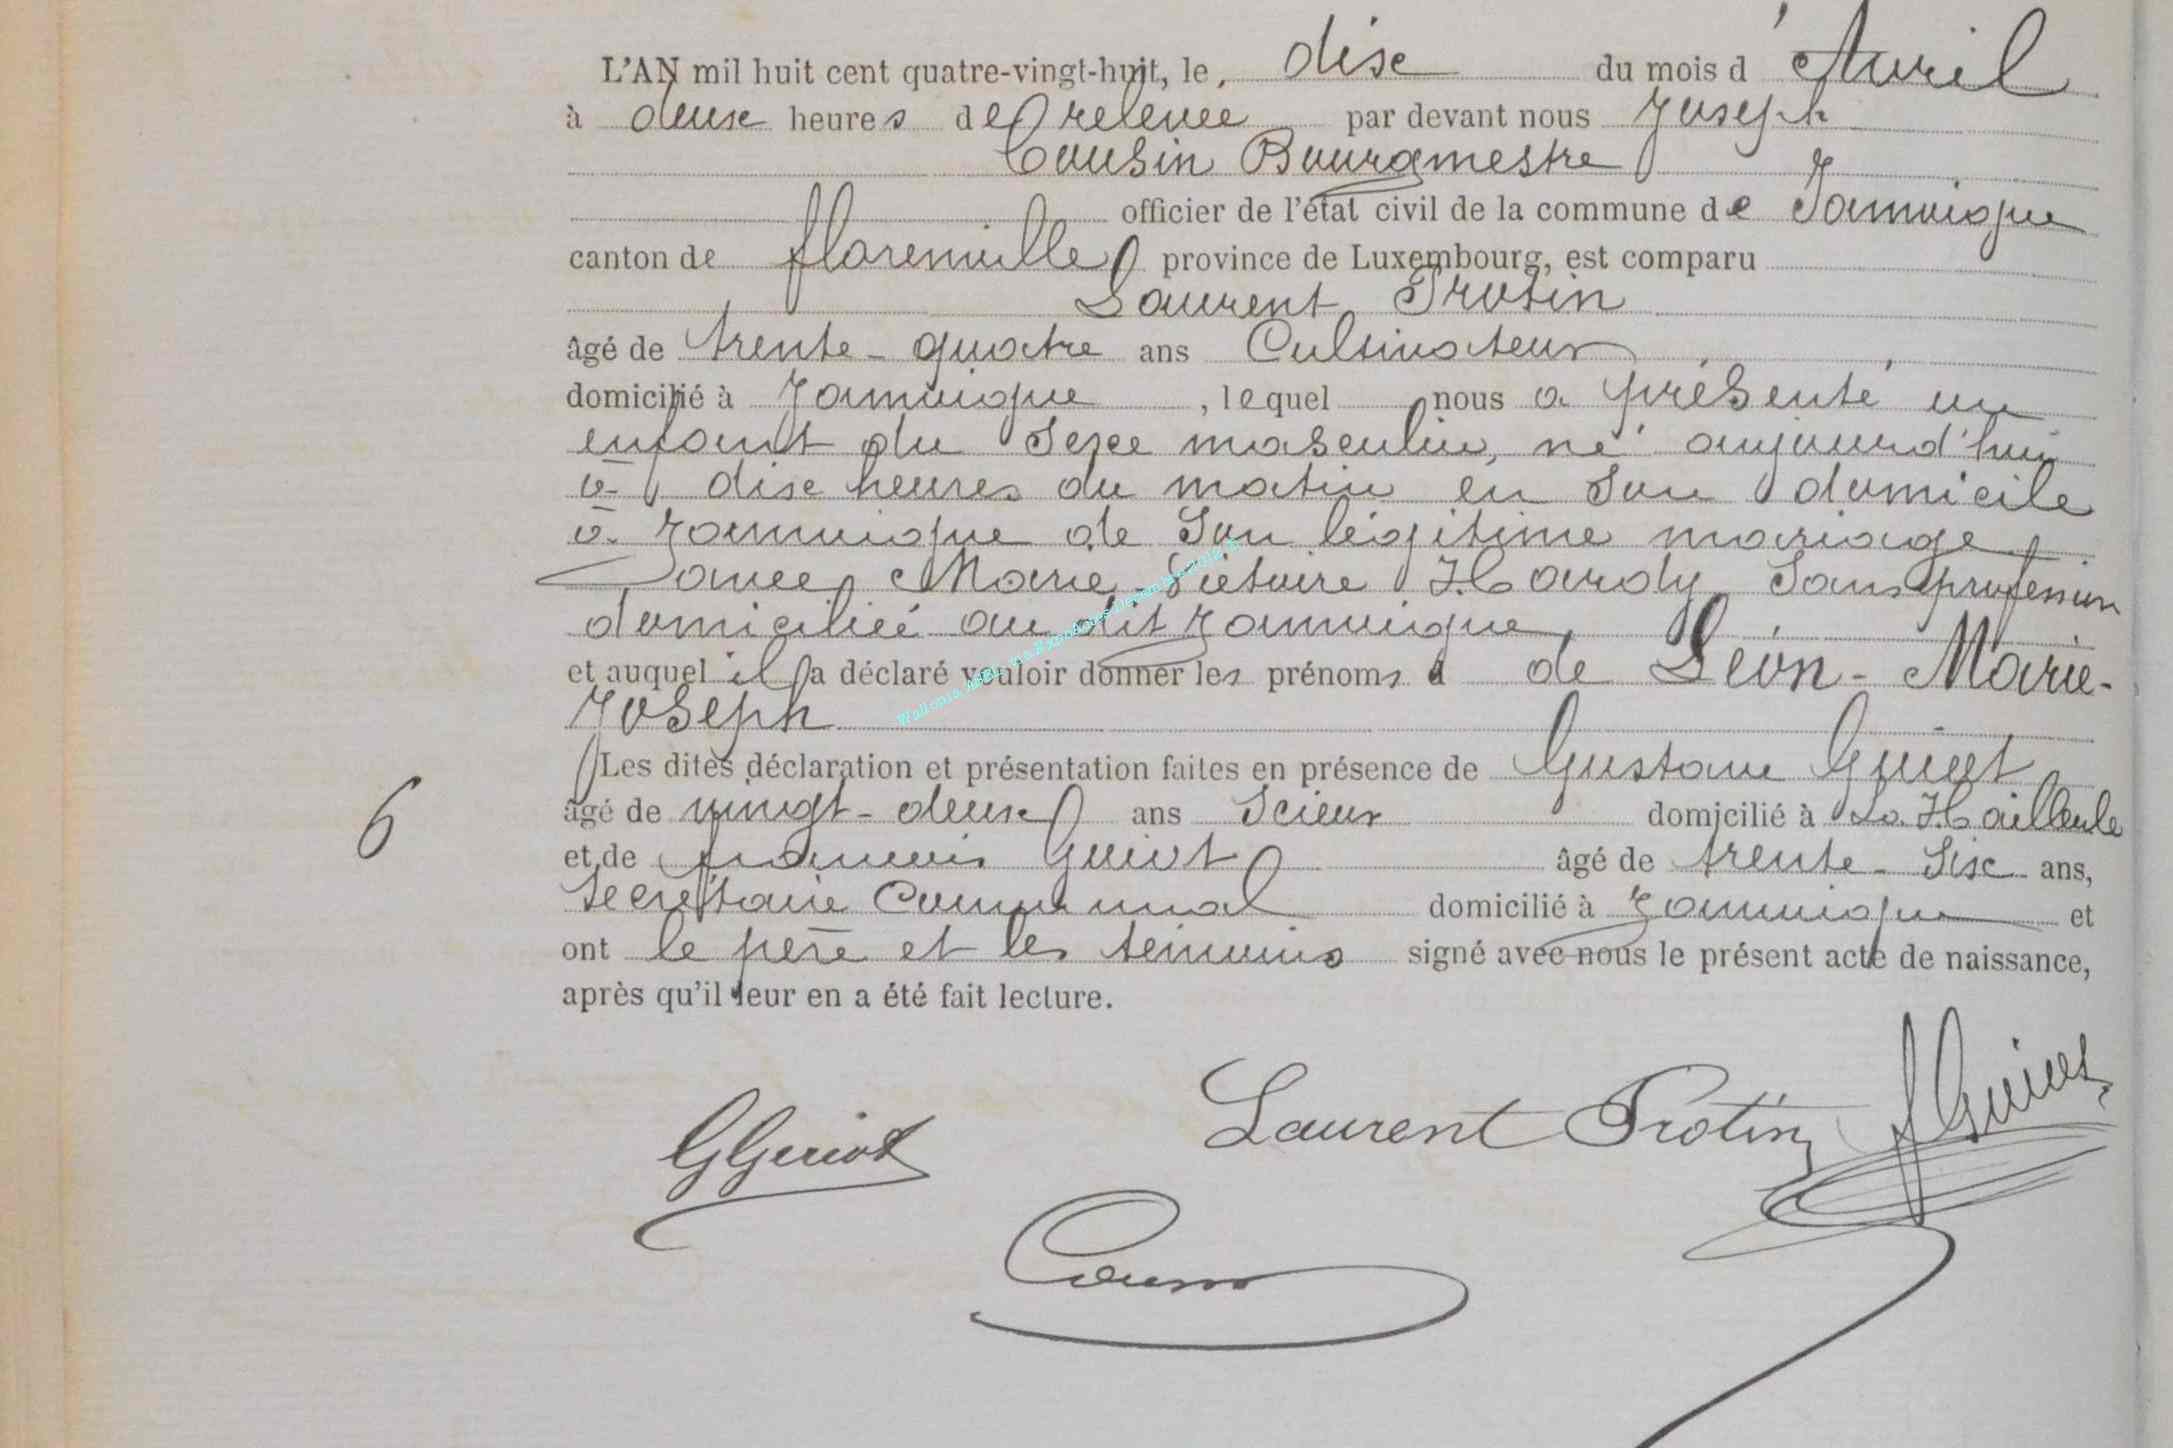 L'AN mil huit cent quatre-vingt-huit, le dix du mois d'Avril
à deux heures de relevée par devant nous Joseph
Cousin Bourgmestre
officier de l'état civil de la commune de Jamoigne
canton de florenville province de Luxembourg, est comparu
Laurent Protin
âgé de trente-quatre ans Cultivateur
domicilié à Jamoigne, lequel nous a présenté un
enfant du Sexe masculin, né aujourd'hui
à dix heures du matin en Son domicile
à Jamoigne de Son légitime mariage
avec Marie-Victoire Hardy Sans profession
domiciliée au dit Jamoigne,
et auquel il a déclaré vouloir donner les prénoms de Léon-Marie-
Joseph
Les dites déclaration et présentation faites en présence de Gustave Guiot
âgé de vingt-deux ans Scieur domicilié à La Hailleule
6
et de françois Guiot âgé de trente-Six ans,
Secrétaire Communal domicilié à Jamoigne et
ont le père et les témoins signé avec nous le présent acte de naissance,
après qu'il leur en a été fait lecture.
GGuiot Laurent Protin fGuiot
Cousin